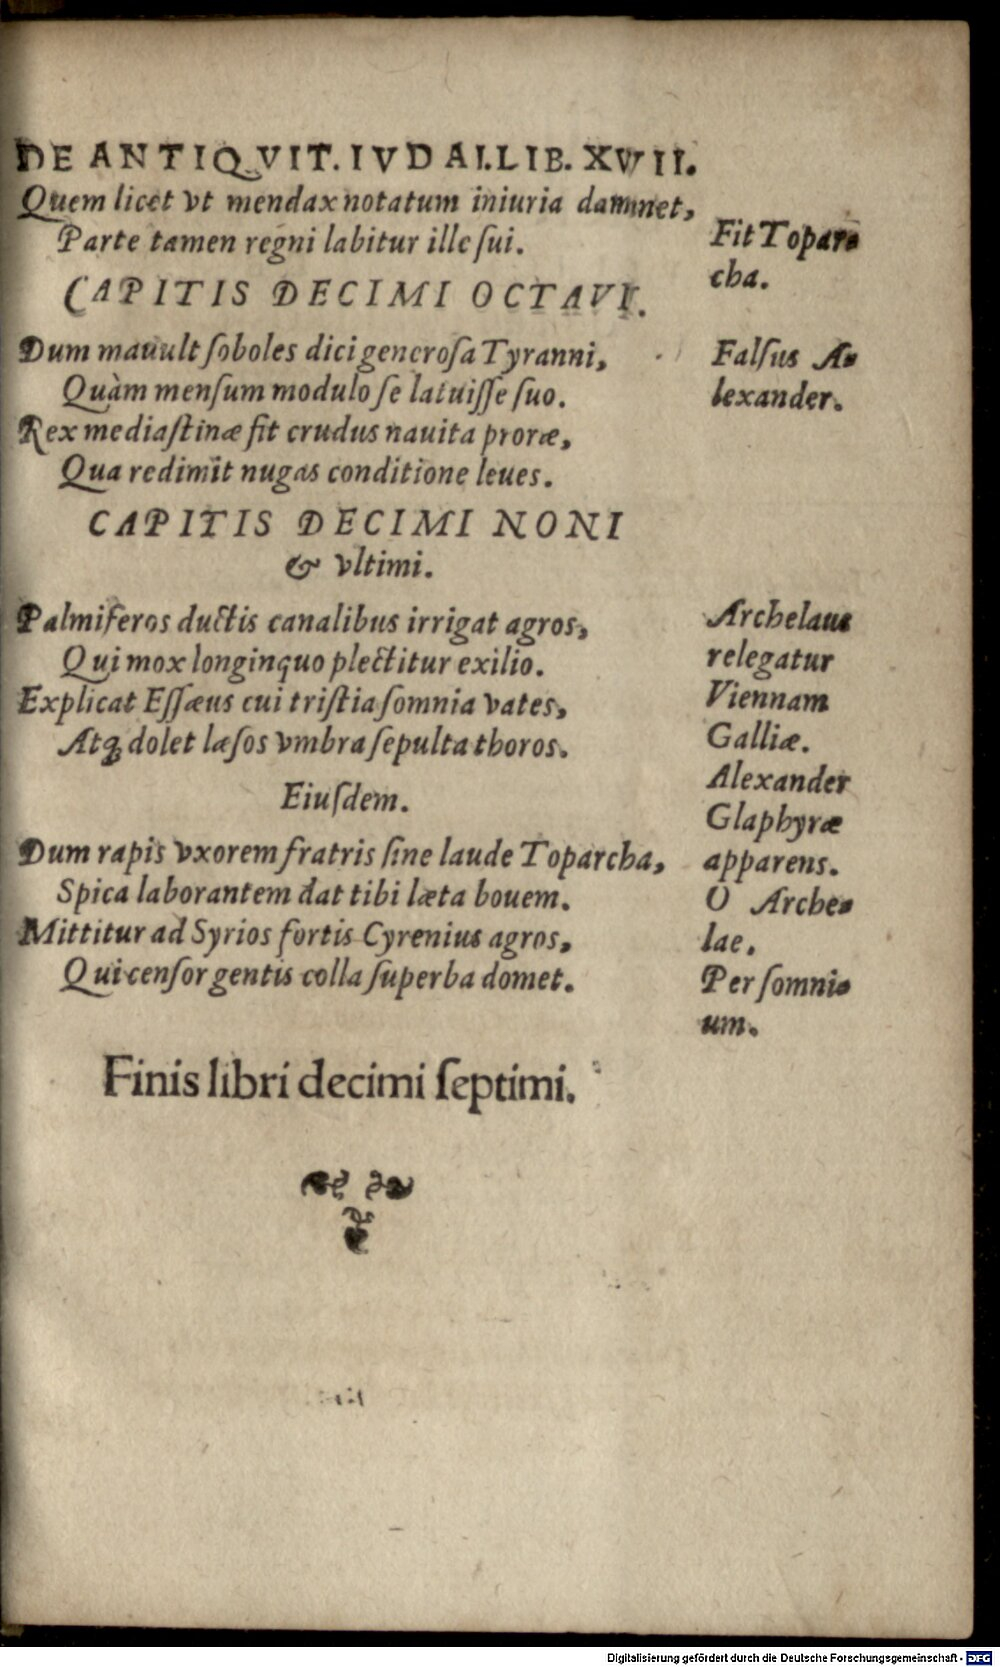 DE ANTIQVIT. IVDAI. LIB. XVII.
Quem licet vt mendax notatum iniuria damnet,
Parte tamen regni labitur ille ſui.
Fit Topar-
cha.
CAPITIS DECIMI OCTAVI.
Dum mauult ſoboles dici generoſa Tyranni,
Quàm menſum modulo ſe latuiſſe ſuo.
Rex mediaſtinæ fit crudus nauita proræ,
Qua redimit nugas conditione leues.
Falſus A-
lexander.
CAPITIS DECIMI NONI
& vltimi.
Palmiferos ductis canalibus irrigat agros,
Qui mox longinquo plectitur exilio.
Explicat Eſſæus cui triſtia ſomnia vates,
Atq; dolet læſos vmbra ſepulta thoros.
Archelaus
relegatur
Viennam
Galliæ.
Alexander
Glaphyræ
apparens.
Eiuſdem.
Dum rapis vxorem fratris ſine laude Toparcha,
Spica laborantem dat tibi læta bouem.
Mittitur ad Syrios fortis Cyrenius agros,
Qui cenſor gentis colla ſuperba domet.
O Arche-
lae.
Per ſomni-
um.
Finis libri decimi ſeptimi.
Digitalisierung gefördert durch die Deutsche Forschungsgemeinschaft - DFG